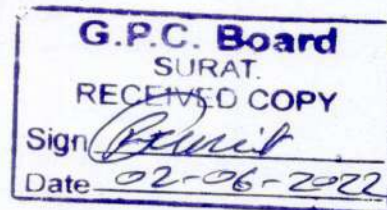 G.P.C. Board
SURAT.
RECEIVED COPY
Sign
Date 02-06-2022